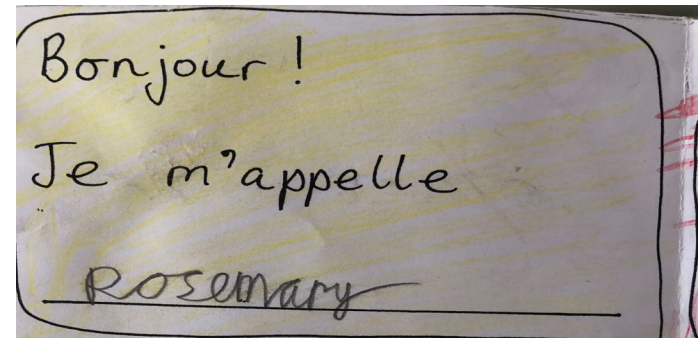 Bonjour !
Je m'appelle
Rosemary